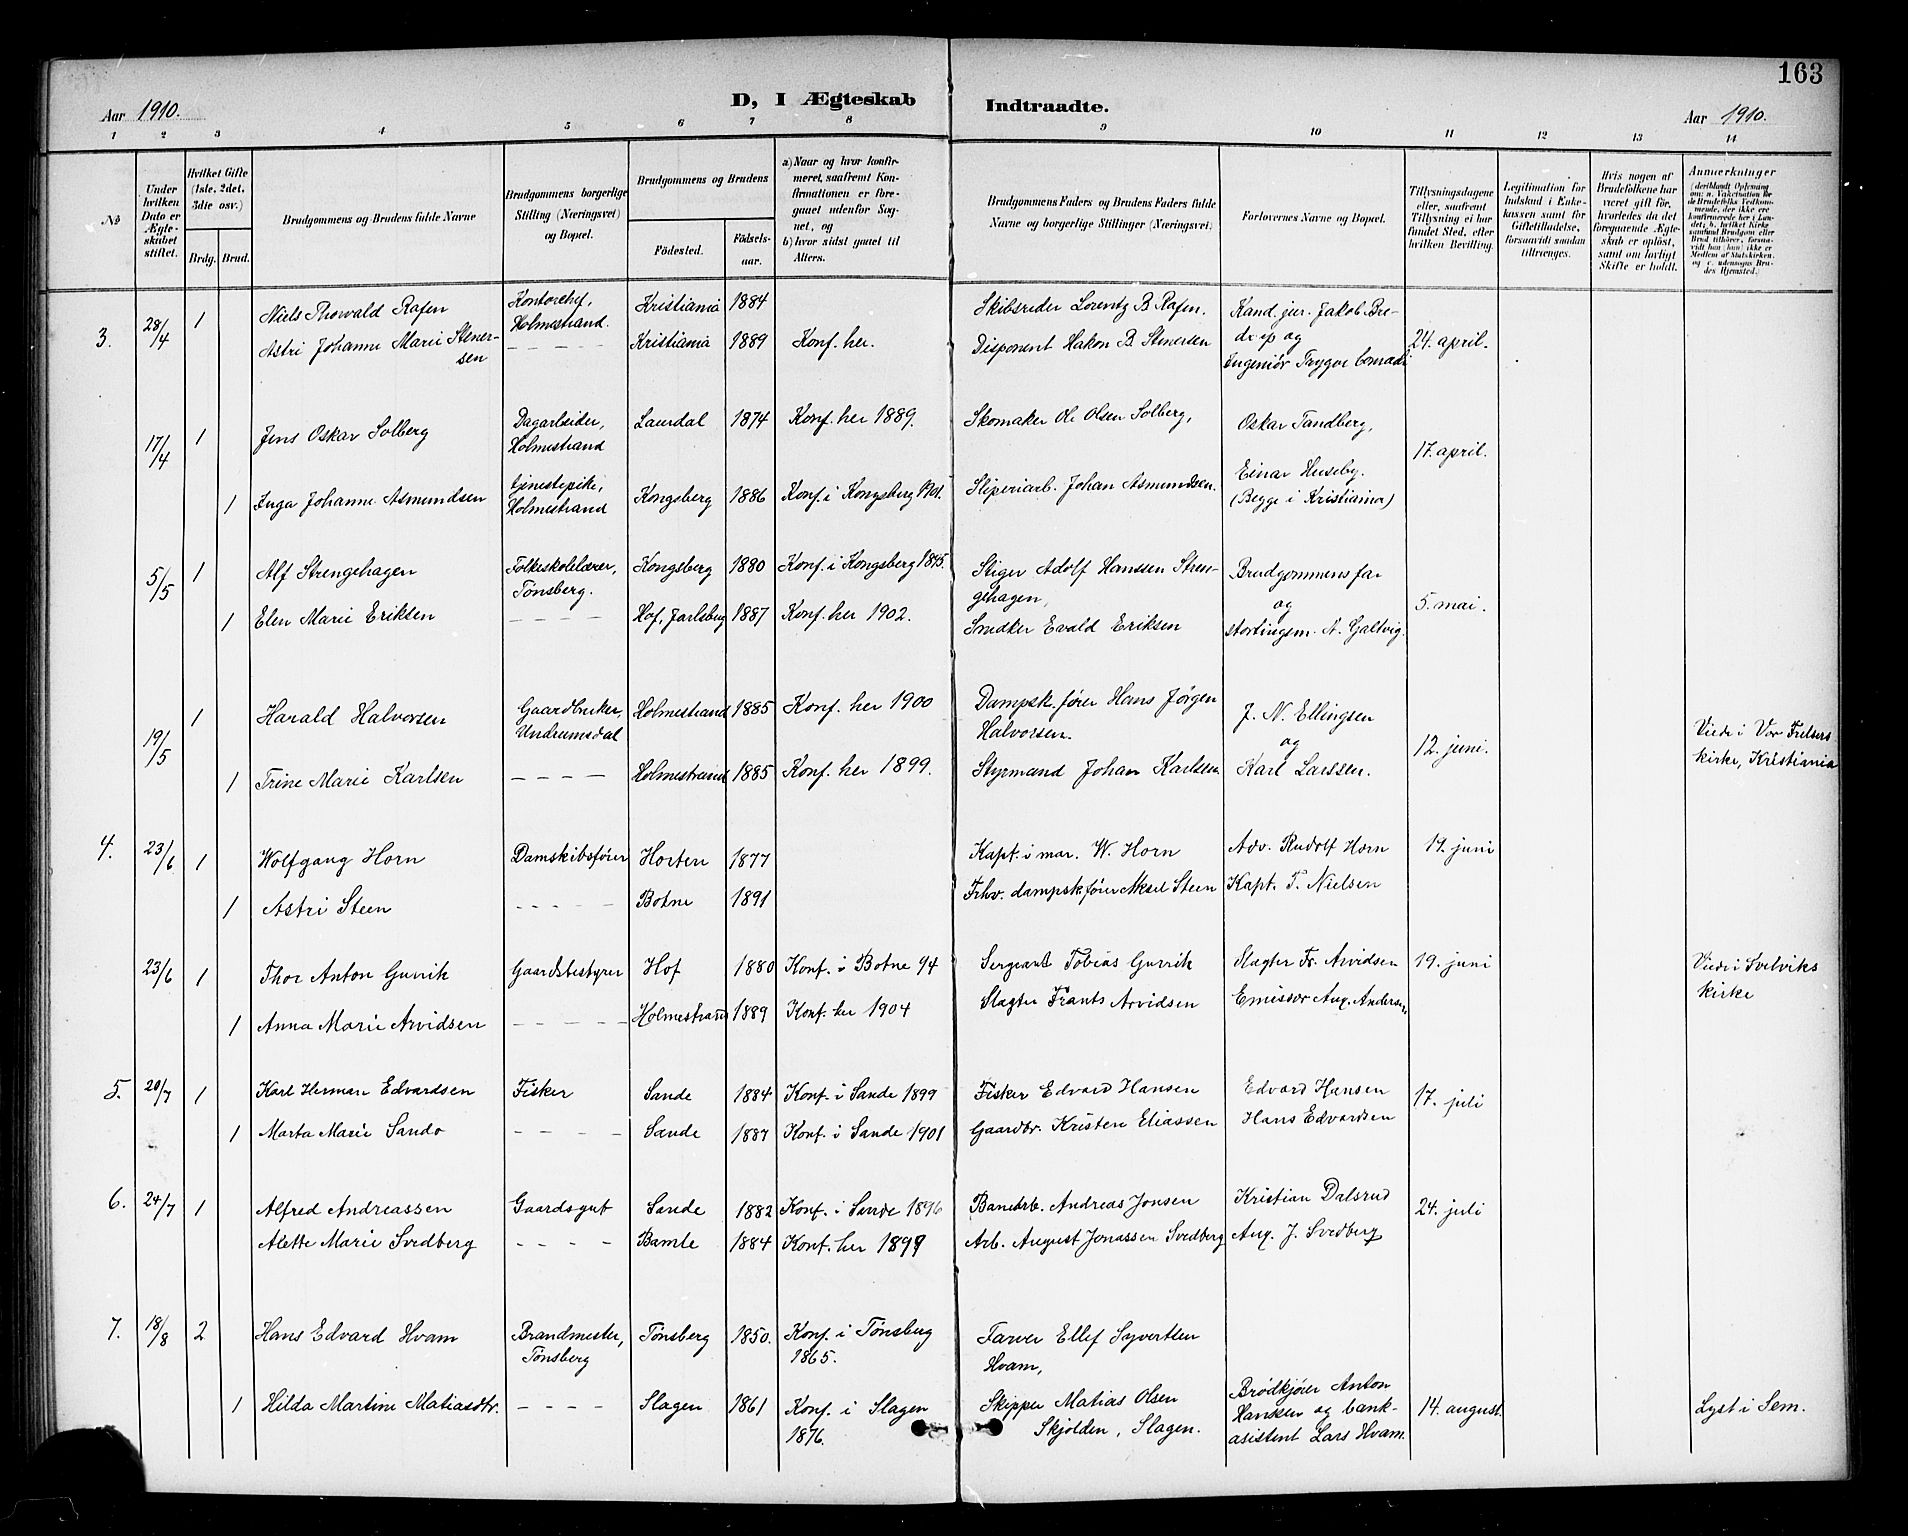 163
Aar 1910.
D, I Ægteskab
Indtraadte.
Aar 1910.
1 2 3 4 5 6 7 8 9 10 11 12 13 14
No
Under hvilken Dato er Ægteskabet stiftet.
Hvilket Gifte (1ste, 2det, 3die osv.)
Brdg. Brud.
Brudgommens og Brudens fulde Navne
Brudgommens borgerlige Stilling (Næringsvei) og Bopæl.
Brudgommens og Brudens
Fødested.
Fødselsaar.
a) Naar og hvor konfirmeret, saafremt Konfirmationen er foregaaet udenfor Sognet, og
b) hvor sidst gaaet til Alters.
Brudgommens Faders og Brudens Faders fulde Navne og borgerlige Stillinger (Næringsvei)
Forlovernes Navne og Bopæl.
Tillysningsdagene eller, saafremt Tillysning ei har fundet Sted, efter hvilken Bevilling.
Legitimation for Indskud i Enkekassen samt for Giftetilladelse, forsaavidt saadan tiltrænges.
Hvis nogen af Brudefolkene har været gift før, hvorledes da det foregaaende Ægteskab er opløst, samt om lovligt Skifte er holdt.
Anmerkninger
3. 28/4 1 Niels Thorvald Rafen Kontorchef, Holmestrand. Kristiania 1884 Skibsreder Lorentz B Rafen. Kand. jur. Jakob Bredrup og
Astri Johanne Marie Stenersen – – – – Kristiania 1889 Konf. her. Disponent Hakon B Stenersen Ingeniør Trygve Conradi 24. april.
17/4 1 Jens Oskar Solberg Dagarbeider, Holmestrand Laurdal 1874 Konf. her 1889. Skomaker Ole Olsen Solberg, Oskar Tandberg, 17. april.
1 Inga Johanne Asmundsen tjenestepike, Holmestrand Kongsberg 1886 Konf. i Kongsberg 1901. Sliperiarb. Johan Asmundsen. Einar Huseby. (Begge i Kristiania)
5/5 1 Alf Strengehagen Folkeskolelærer, Tønsberg. Kongsberg 1880 Konf. i Kongsberg 1895. Stiger Adolf Hanssen Strengehagen, Brudgommens far og
1 Elen Marie Eriksen – – – – Hof, Jarlsberg 1887 Konf. her 1902. Snedker Evald Eriksen stortingsm. N. Galtvig. 5. mai.
19/5 1 Harald Halvorsen Gaardbruker, Undrumsdal Holmestrand 1885 Konf. her 1900 Dampsk. fører Hans Jørgen Halvorsen. J. N. Ellingsen og 12. juni. Viede i Vor Frelsers kirke, Kristiania
1 Trine Marie Karlsen – – – – Holmestrand 1885 Konf. her 1899. Styrmand Johan Karlsen Karl Larssen.
4. 23/6 1 Wolfgang Horn Damskibsfører Horten 1877 Kapt. i mar. W. Horn Adv. Rudolf Horn 19. juni
1 Astri Steen – – – – Botne 1891 Fhv. dampsk. fører Aksel Steen Kapt. T. Nielsen
23/6 1 Thor Anton Gurrik Gaardsbestyrer Hof 1880 Konf. i Botne 94 Sergeant Tobias Gurrik Slagter Fr. Arvidsen 19. juni Viede i Svelviks kirke
1 Anna Marie Arvidsen – – – – Holmestrand 1889 Konf. her 1904 Slagter Frants Arvidsen Emissær Aug. Andersen
5. 20/7 1 Karl Herman Edvardsen Fisker Sande 1884 Konf. i Sande 1899 Fisker Edvard Hansen Edvard Hansen 17. juli
1 Marta Marie Sando – – – – Sande 1887 Konf. i Sande 1901 Gaardbr. Kristen Eliassen Hans Edvardsen
6. 24/7 1 Alfred Andreassen Gaardsgut Sande 1882 Konf. i Sande 1896 Banearb. Andreas Jonsen Kristian Dalsrud 24. juli
Alette Marie Svedberg – – – – Bamle 1884 Konf. her 1899 Arb. August Jonassen Svedberg Aug. J. Svedberg
7. 18/8 2 Hans Edvard Hvam Brandmester, Tønsberg Tønsberg 1850. Konf. i Tønsberg 1865. Farver Ellef Syvertsen Hvam,
1 Hilda Martine Matiasdtr. – – – – Slagen 1861 Konf. i Slagen 1876. Skipper Matias Olsen Skjolden, Slagen. Brødkjører Anton Hansen og bankasistent Lars Hvam. 14. august. Lyst i Sem.